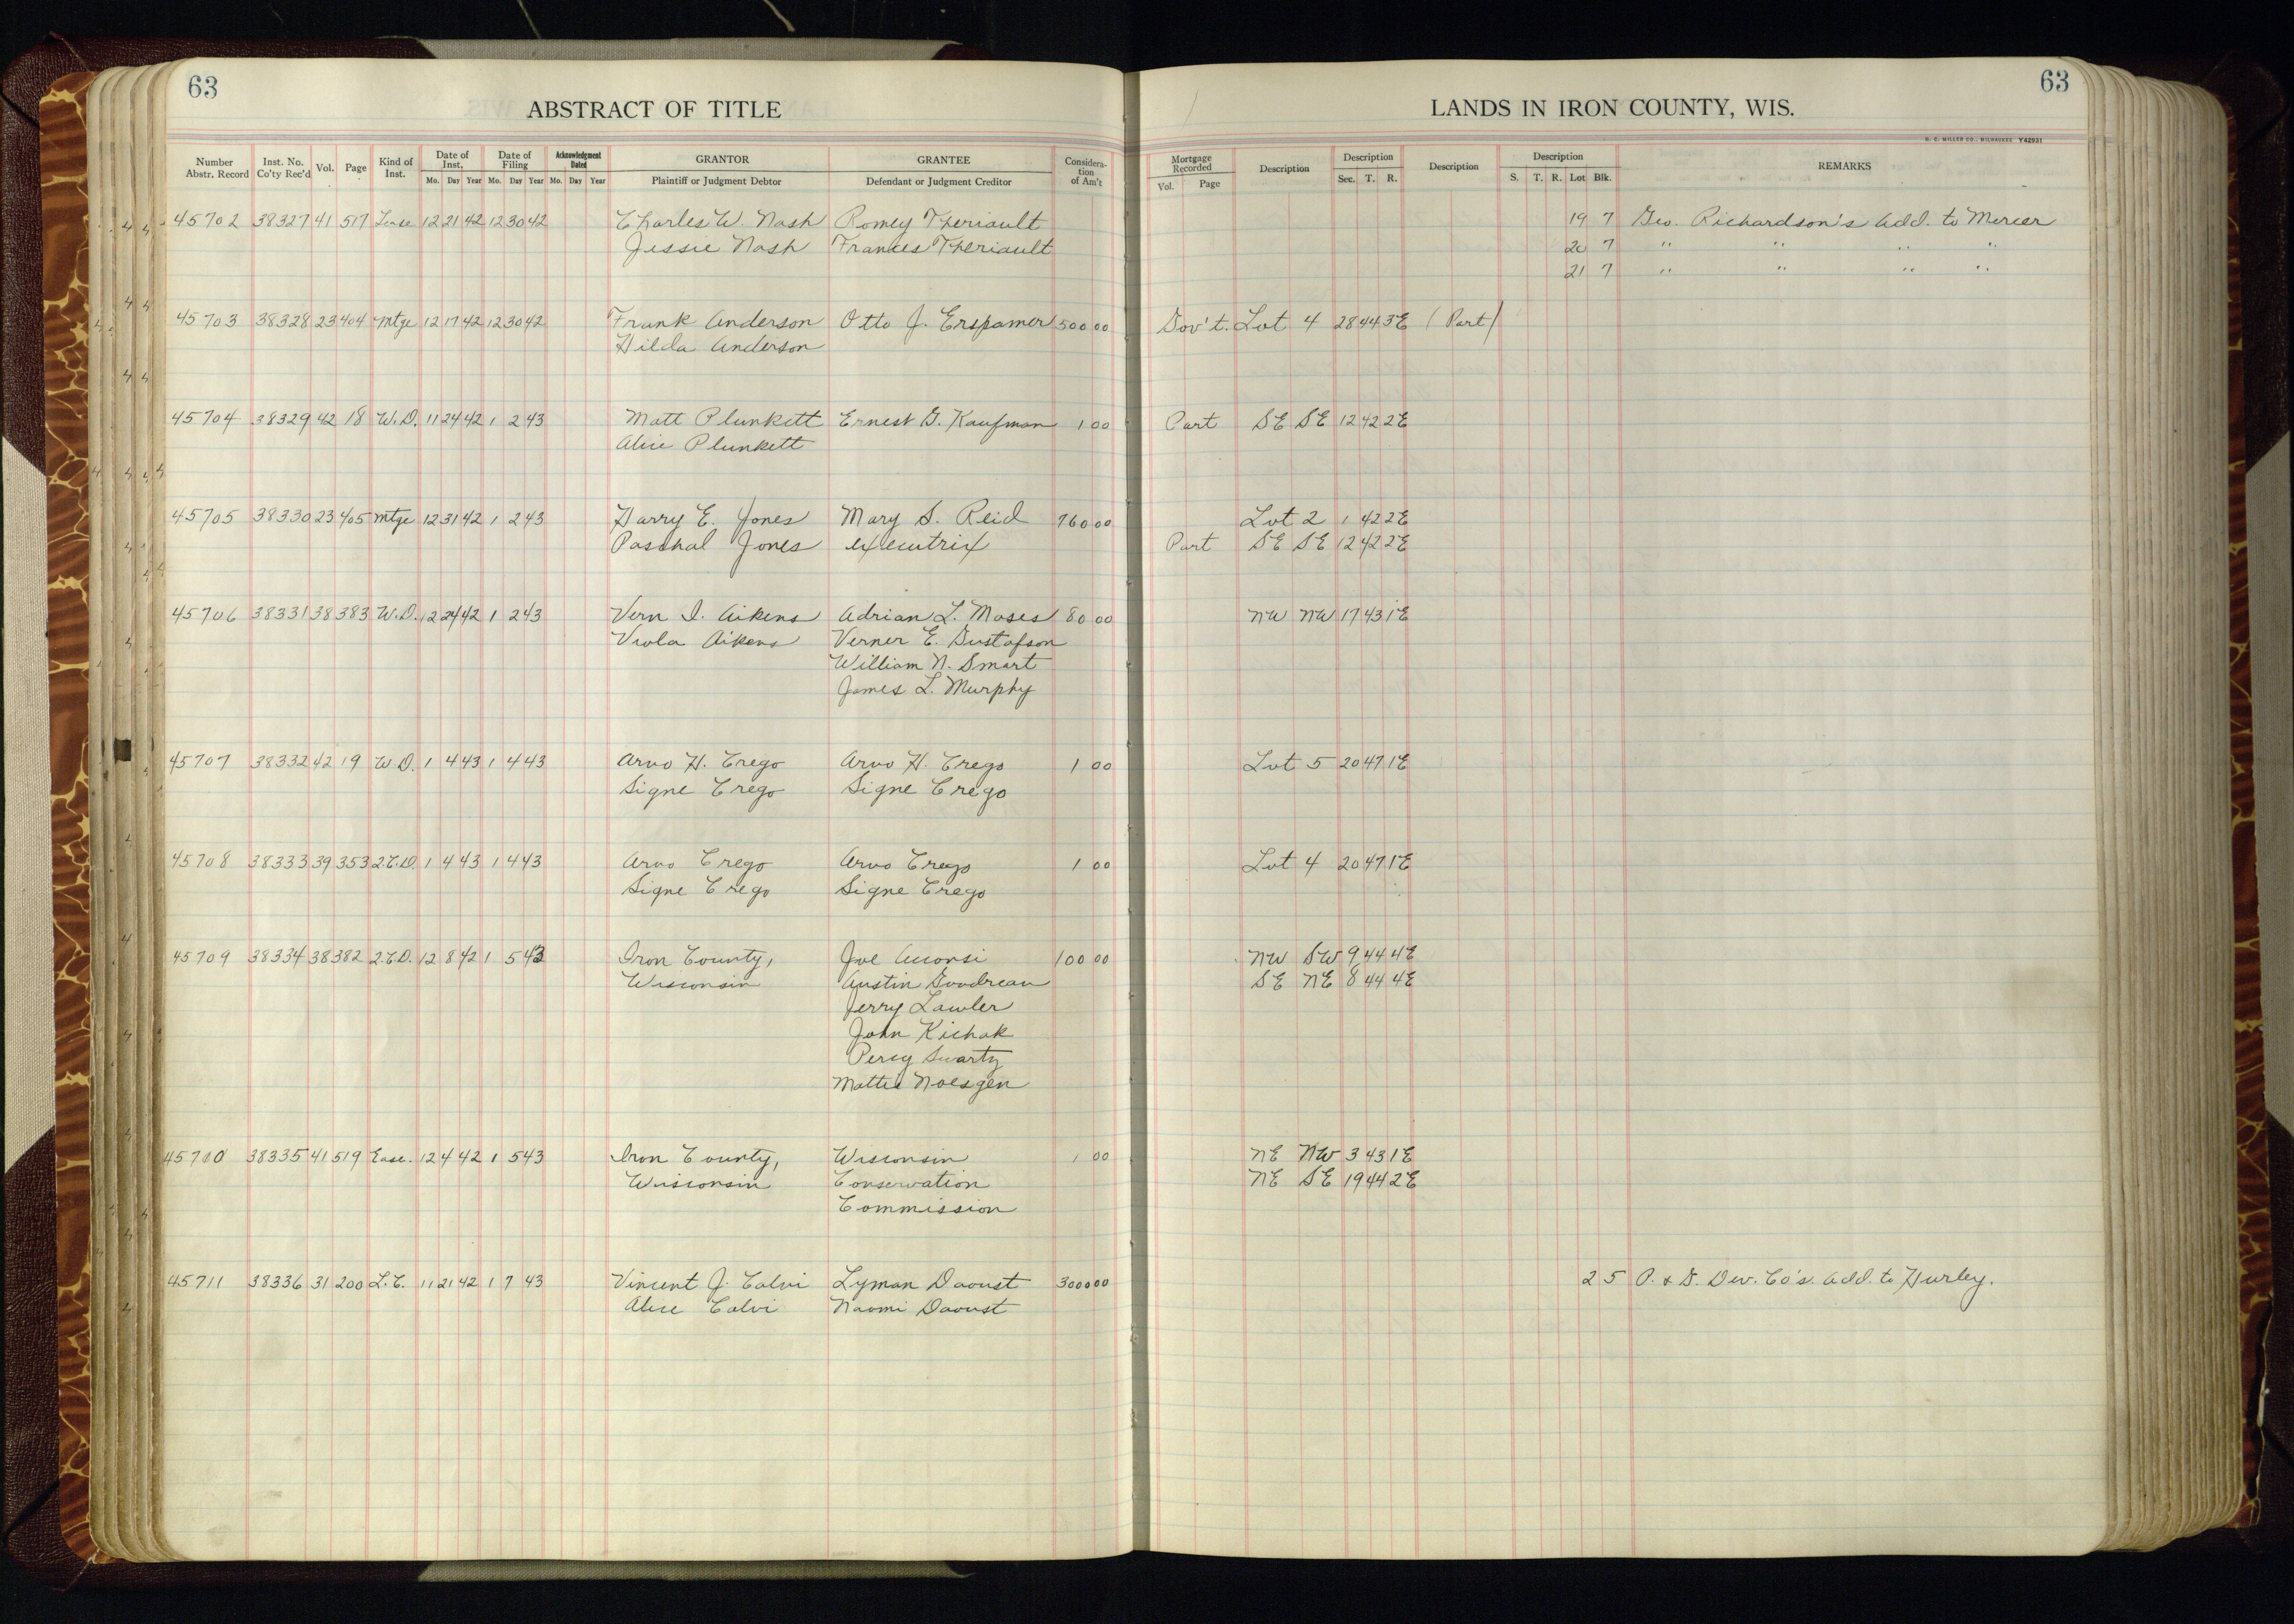 63
ABSTRACT OF TITLE
Number Abstr. Record Inst. No. Co'ty Rec'd Vol. Page Kind of Inst. Date of Inst. Mo. Day Year Date of Filing Mo. Day Year Acknowledgment Dated Mo. Day Year GRANTOR Plaintiff or Judgment Debtor GRANTEE Defendant or Judgment Creditor Considera-tion of Am't
45702 38327 41 517 Lease 12 21 42 12 30 42 Charles W. Nash Romey Theriault
Jessie Nash Frances Theriault
45703 38328 23 404 Mtge 12 17 42 12 30 42 Frank Anderson Otto J. Erspamer 500 00
Hilda Anderson
45704 38329 42 18 W.D. 11 24 42 1 2 43 Matt Plunkett Ernest G. Kaufman 1 00
Alice Plunkett
45705 38330 23 405 Mtge 12 31 42 1 2 43 Harry E. Jones Mary S. Reid 760 00
Paschal Jones executrix
45706 38331 38 383 W.D. 12 24 42 1 2 43 Vern I. Aikens Adrian L. Moses 80 00
Viola Aikens Verner E. Gustafson
William N. Smart
James L. Murphy
45707 38332 42 19 W.D. 1 4 43 1 4 43 Arvo H. Crego Arvo H. Crego 1 00
Signe Crego Signe Crego
45708 38333 39 353 2.C.D. 1 4 43 1 4 43 Arvo Crego Arvo Crego 1 00
Signe Crego Signe Crego
45709 38334 38 382 2.C.D. 12 8 42 1 5 43 Iron County, Joe Aiionsi 100 00
Wisconsin Austin Goodreau
Jerry Lawler
John Kichak
Percy Swartz
Mattie Noesgen
45710 38335 41 519 Ease. 12 4 42 1 5 43 Iron County, Wisconsin 1 00
Wisconsin Conservation
Commission
45711 38336 31 200 L.C. 11 21 42 1 7 43 Vincent J. Calvi Lyman Daoust 3000 00
Alice Calvi Naomi Daoust
63
LANDS IN IRON COUNTY, WIS.
H. C. MILLER CO., MILWAUKEE Y42931
Mortgage Recorded Vol. Page Description Description Sec. T. R. Description Description S. T. R. Lot Blk. REMARKS
19 7 Geo. Richardson's Add. to Mercer
20 7 " " " "
21 7 " " " "
Gov't. Lot 4 28 44 3E (Part)
Part SE SE 12 42 2E
Lot 2 1 42 2E
Part SE SE 12 42 2E
NW NW 17 43 1E
Lot 5 20 47 1E
Lot 4 20 47 1E
NW SW 9 44 4E
SE NE 8 44 4E
NE NW 3 43 1E
NE SE 19 44 2E
2 5 P. & D. Dev. Co's. Add. to Hurley.